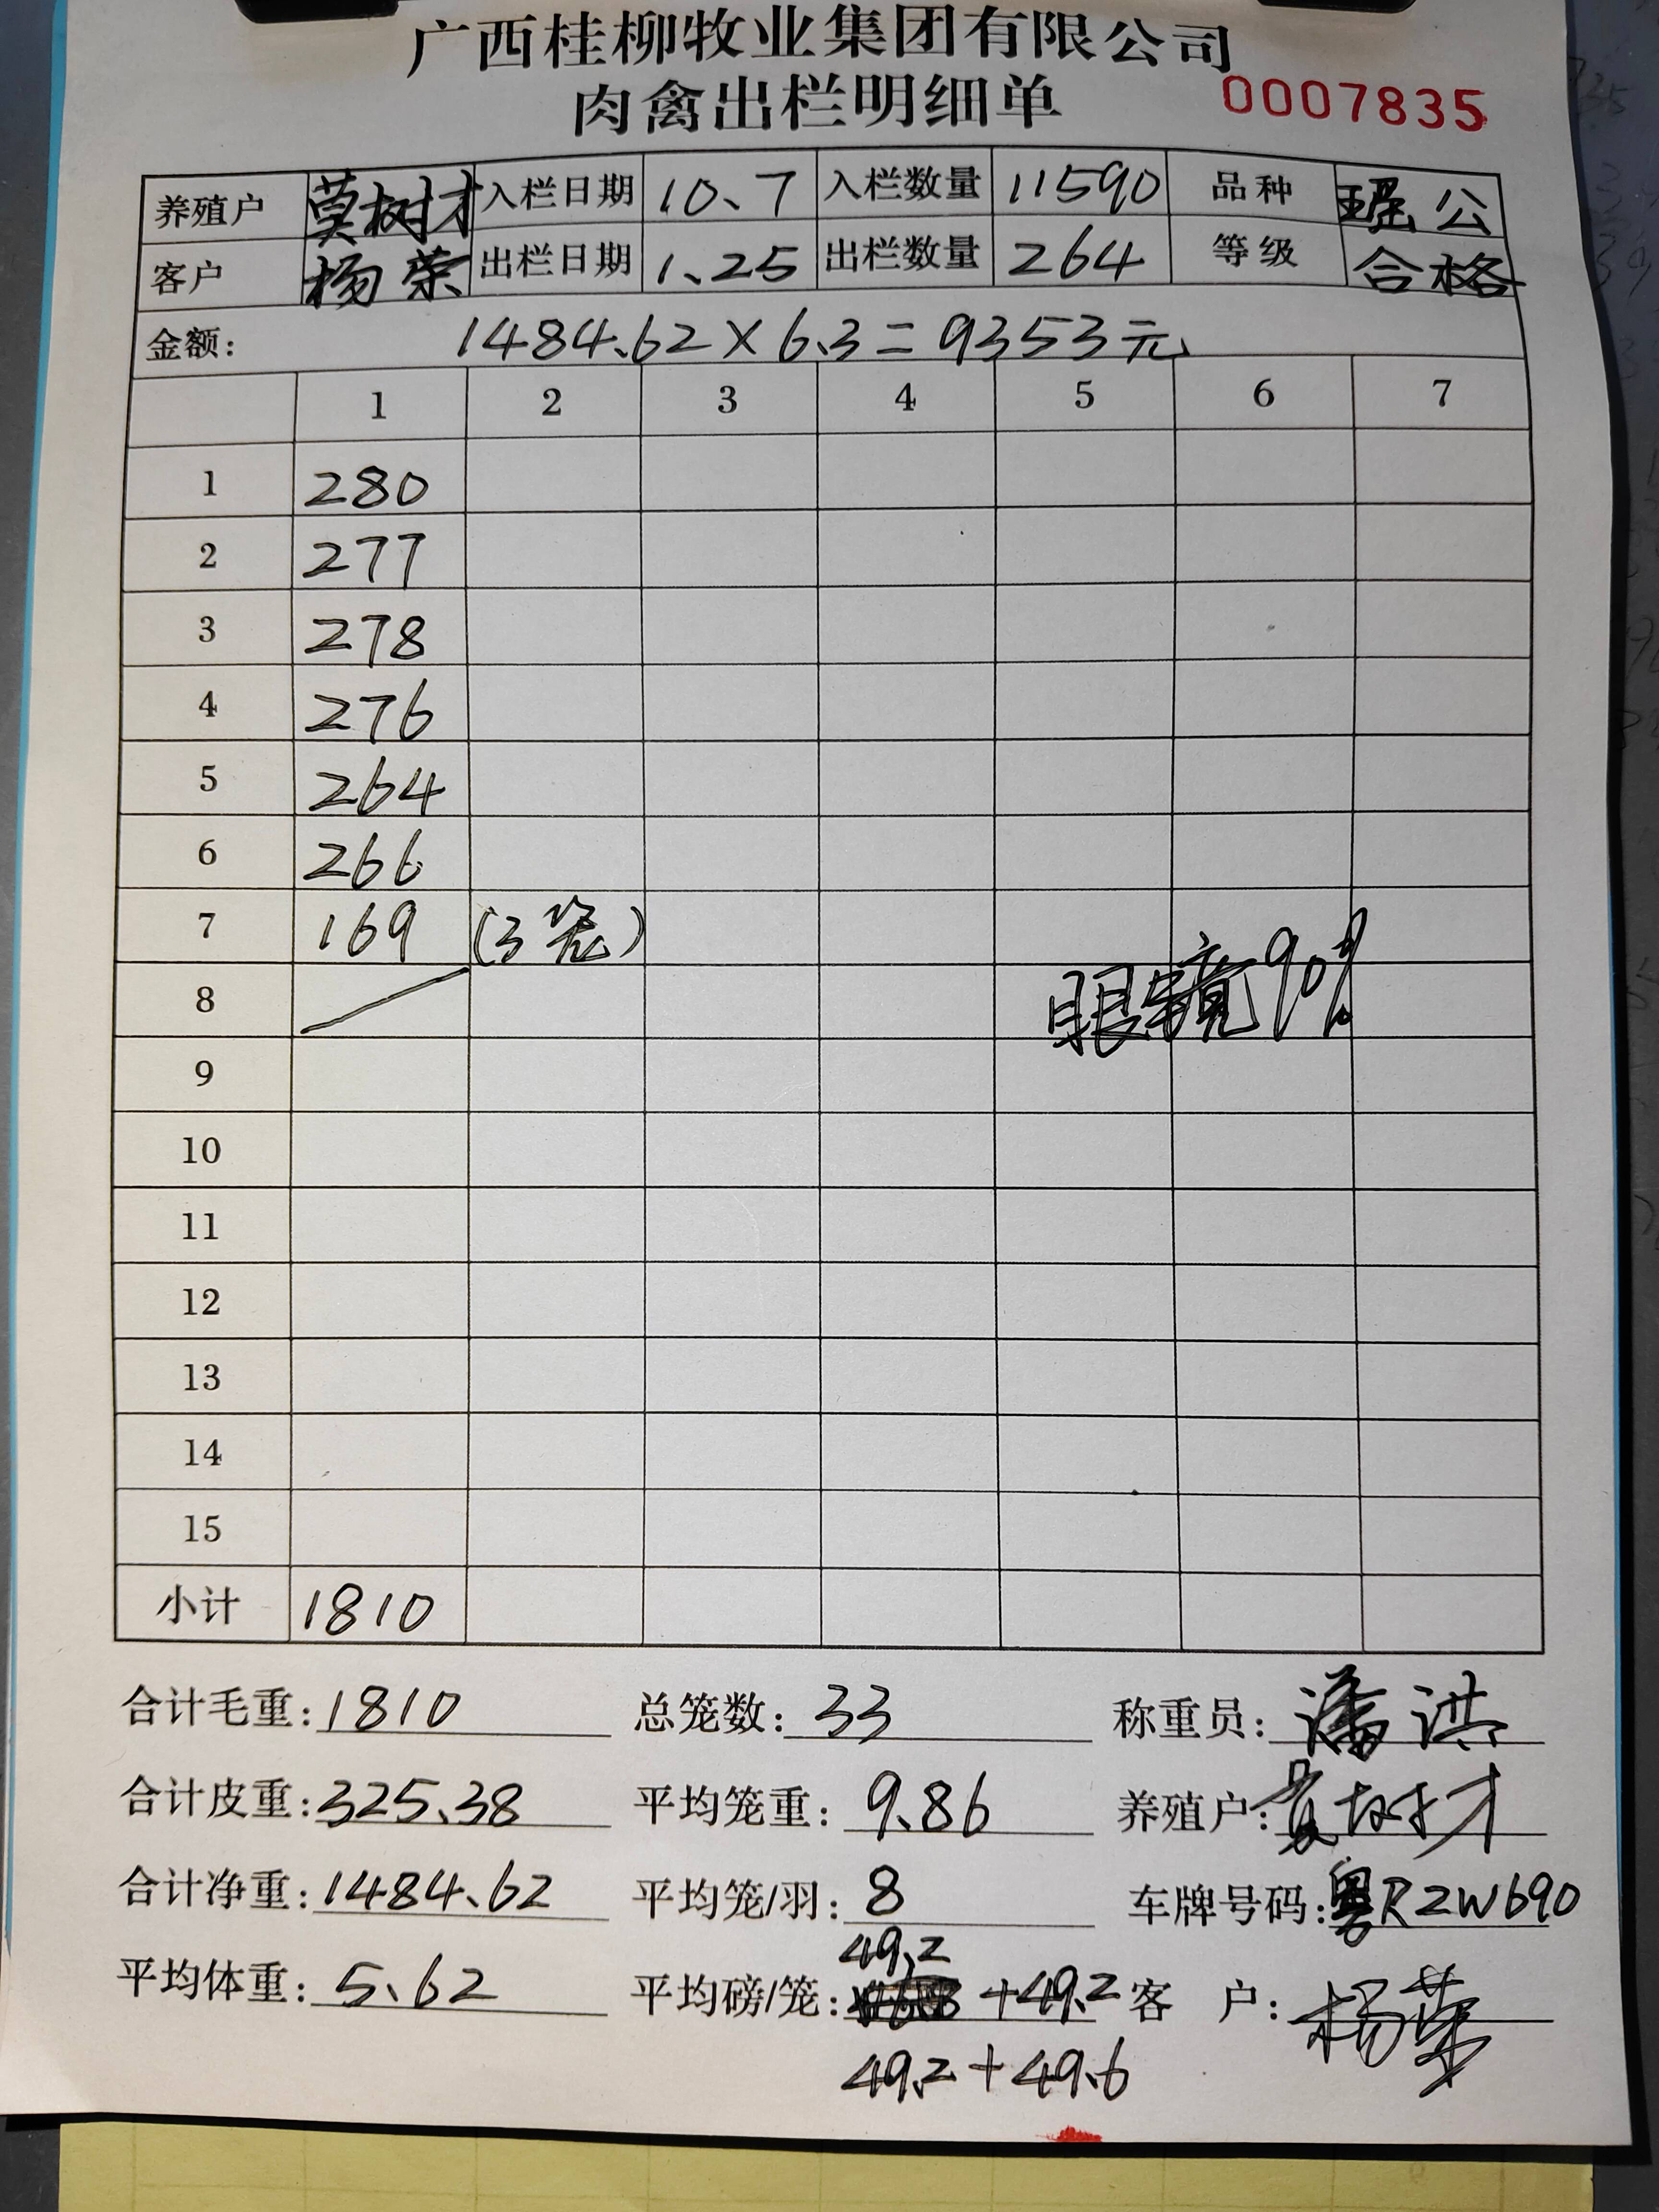 广西桂柳牧业集团有限公司
肉禽出栏明细单 0007835
养殖户 莫树才 入栏日期 10、7 入栏数量 11590 品种 瑶公
客户 杨荣 出栏日期 1、25 出栏数量 264 等级 合格
金额: 1484.62×6.3=9353元
1 2 3 4 5 6 7
1 280
2 277
3 278
4 276
5 264
6 266
7 169 (3笼)
8 眼镜90%
9
10
11
12
13
14
15
小计 1810
合计毛重:1810 总笼数:33 称重员:潘洪
合计皮重:325.38 平均笼重:9.86 养殖户:莫树才
合计净重:1484.62 平均笼/羽:8 车牌号码:粤R2W690
49.2
平均体重:5.62 平均磅/笼: +49.2 客户:杨荣
49.2+49.6